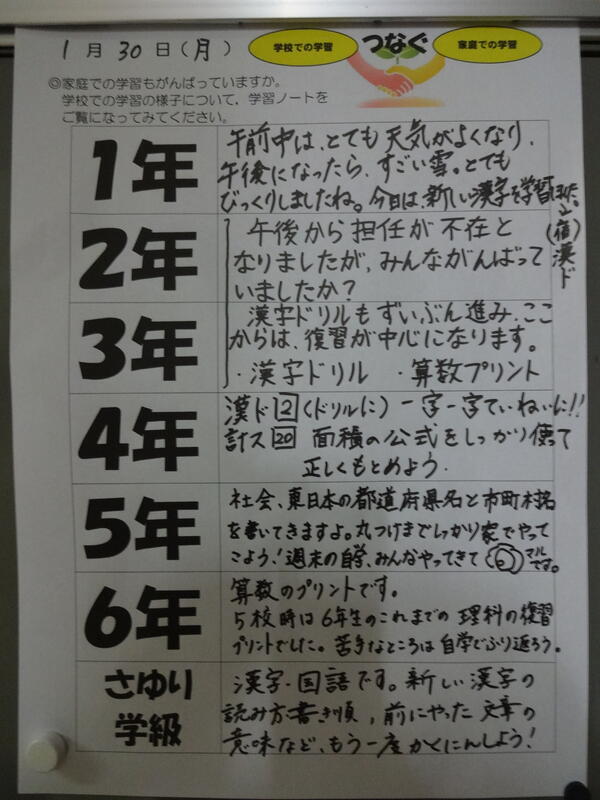 1月30日(月)
学校での学習
つなぐ
家庭での学習
◎家庭での学習もがんばっていますか。
学校での学習の様子について、学習ノートを
ご覧になってみてください。
1年
午前中は、とても天気がよくなり、
午後になったら、すごい雪。とても
びっくりしましたね。今日は、新しい漢字を学習
(宿)漢ド
2年
午後から担任が不在と
なりましたが、みんながんばって
いましたか?
3年
漢字ドリルもずいぶん進み、ここ
からは、復習が中心になります。
・漢字ドリル ・算数プリント
4年
漢ド2(ドリルに)一字一字ていねいに!!
計ス20 面積の公式をしっかり使って
正しくもとめよう.
5年
社会、東日本の都道府県名と市町村名
を書いてきますよ。丸つけまでしっかり家でやって
こよう!週末の自学、みんなやってきて
マル
です。
6年
算数のプリントです。
5校時は6年生のこれまでの理科の復習
プリントでした。苦手なところは自学でふり返ろう。
さゆり
学級
漢字・国語です。新しい漢字の
読み方書き順、前にやった文章の
意味など、もう一度かくにんしよう!